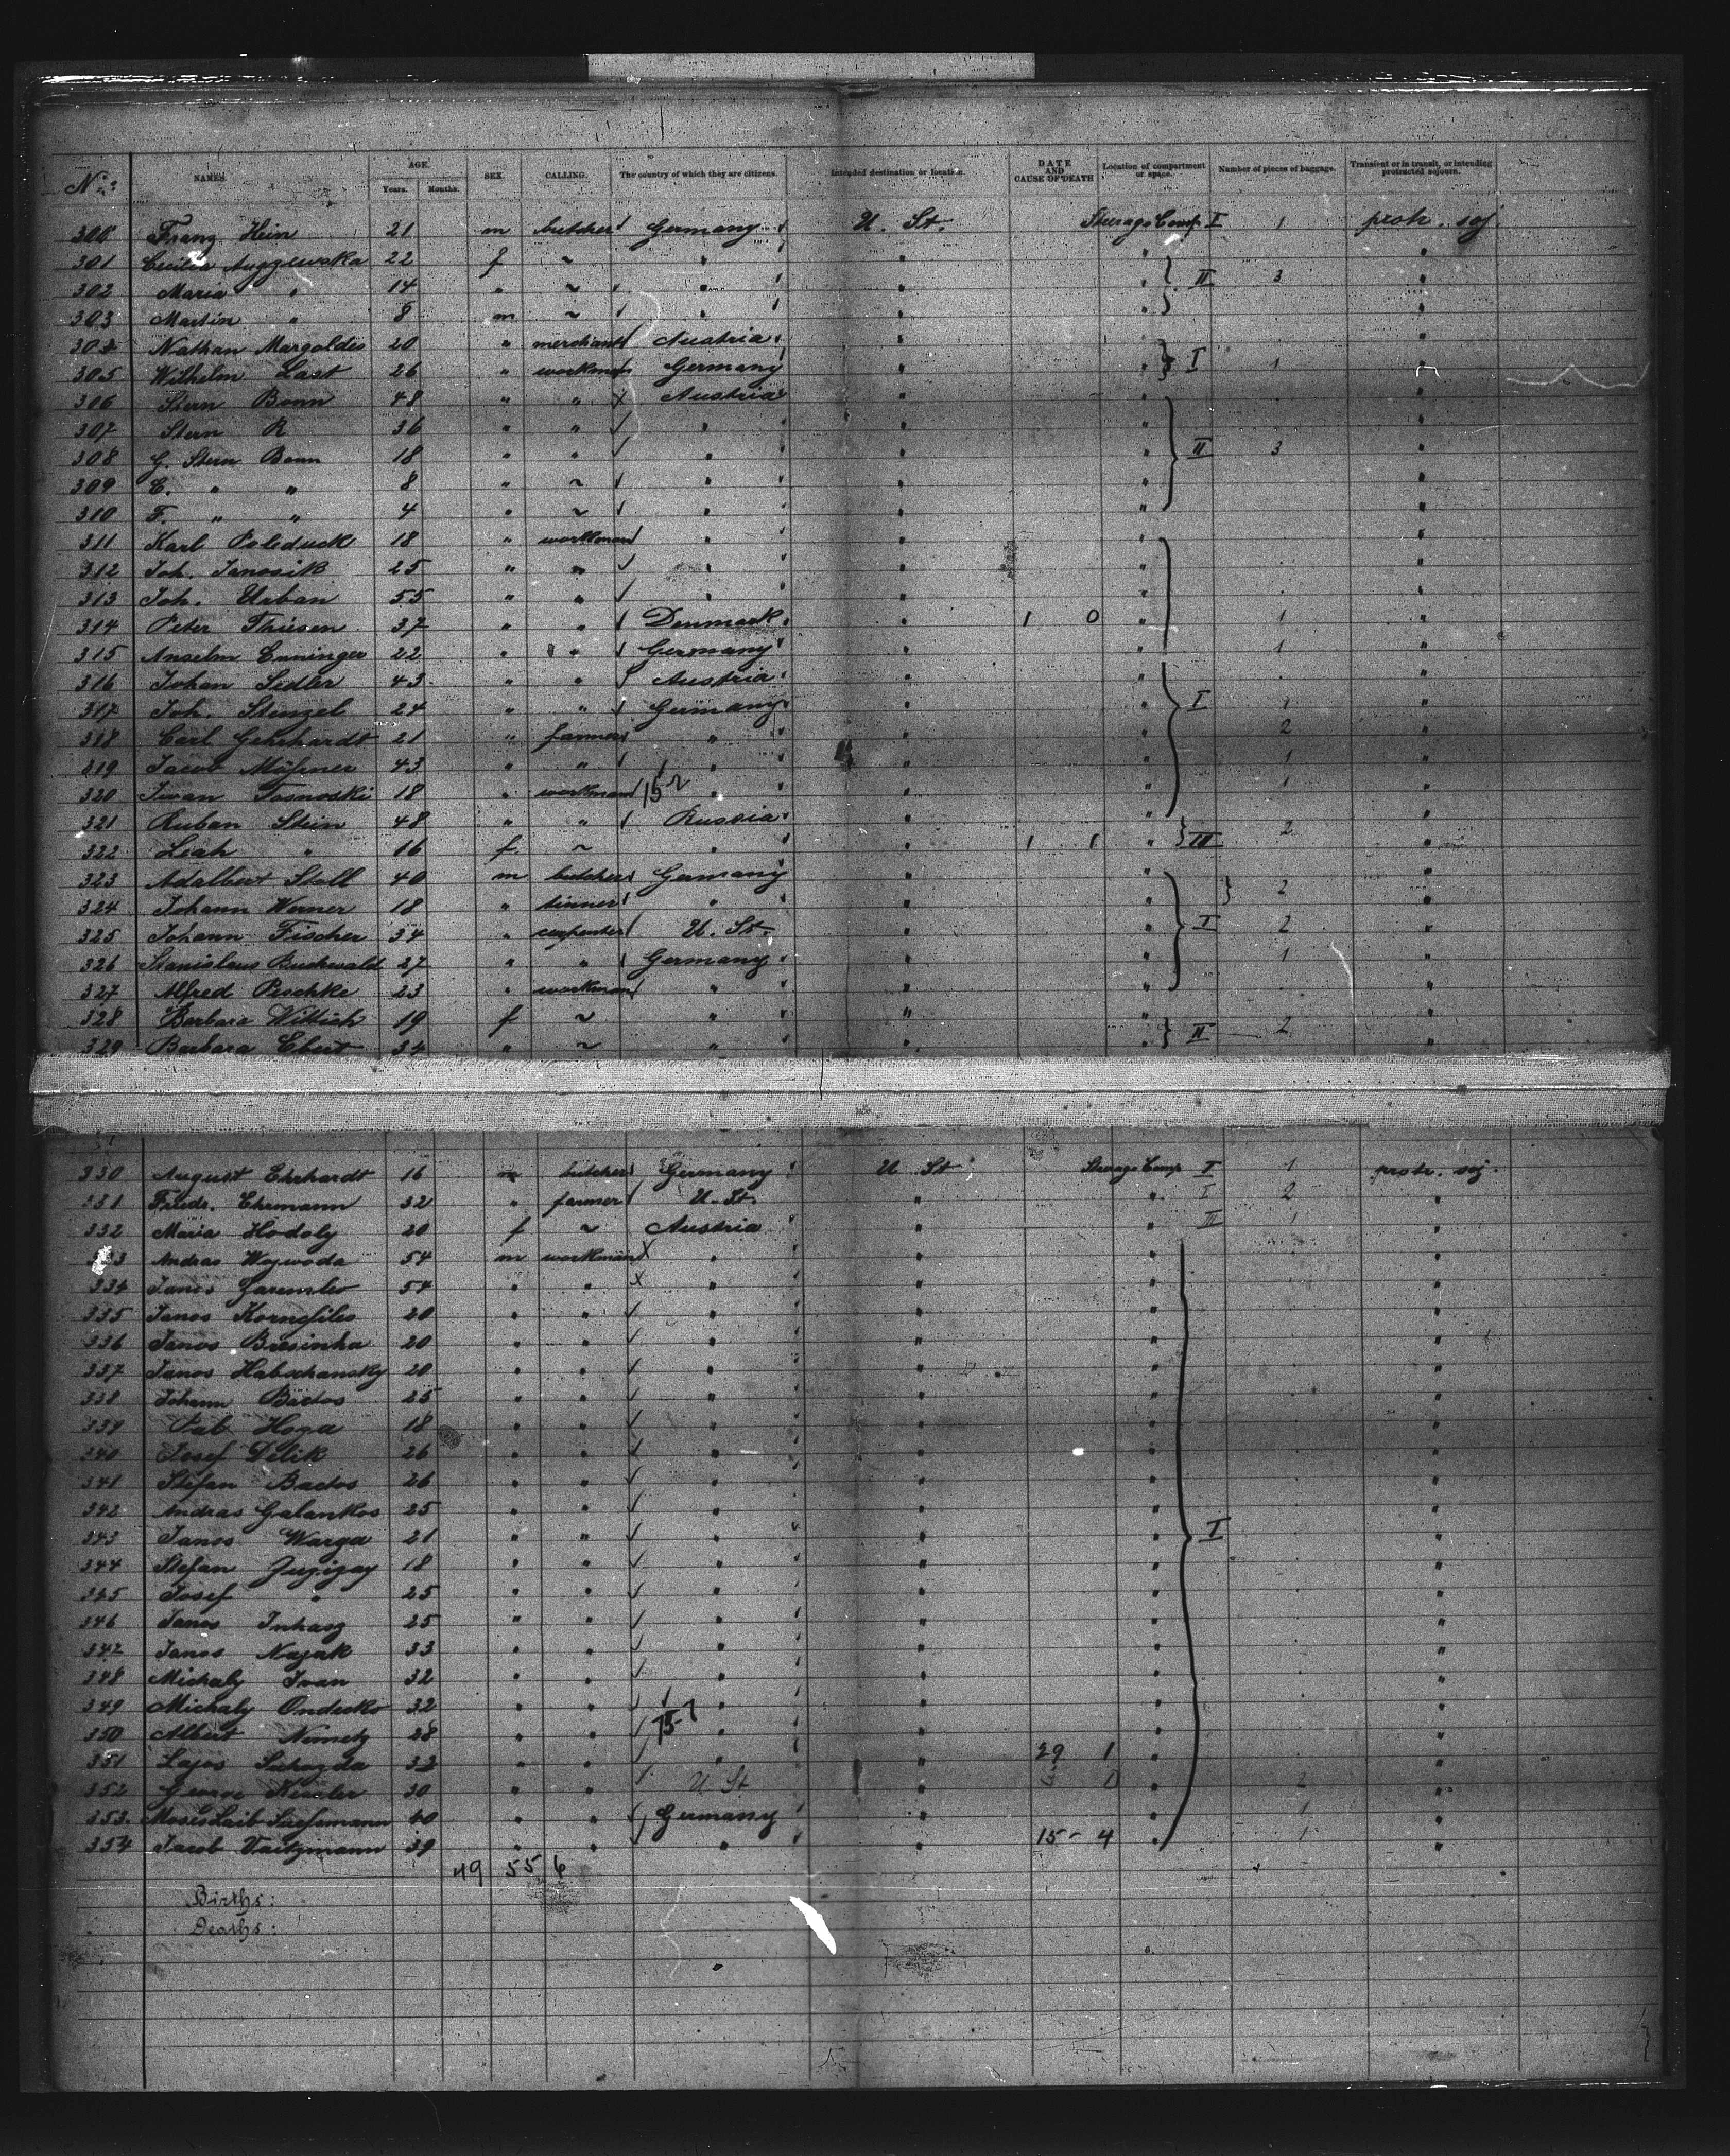 No. NAMES. AGE. Years. Months. SEX. CALLING. The country of which they are citizens. Intended destination or location. DATE AND CAUSE OF DEATH Location of compartment or space. Number of pieces of baggage. Transient or in transit, or intending protracted sojourn.
300 Franz Hein 21 m butcher Germany U. St. Steerage Comp. I 1 protr. soj.
301 Cecilia 22 f ~ " " " "
302 Maria " 14 " ~ " " " II 3 "
303 Martin " 8 m ~ " " " "
304 Nathan Margoldes 20 " merchant Austria " " "
305 Wilhelm Last 26 " workman Germany " " I 1 "
306 Stern Bonn 48 " " Austria " " "
307 Stern R 36 " " " " " "
308 G. Stern Bonn 18 " " " " " II 3 "
309 E. " " 8 " ~ " " " "
310 F. " " 4 " ~ " " " "
311 Karl Poleduck 18 " workman " " " "
312 Joh. Janosik 25 " " " " " "
313 Joh. Urban 55 " " " " " "
314 Peter Thiesen 37 " " Denmark " 1 0 " 1 "
315 Anselm Enninger 22 " " Germany " " 1 "
316 Johan Sedler 43 " " Austria " " "
317 Joh. Stenzel 24 " " Germany " " I 1 "
318 Carl Gehrhardt 21 " farmer " " " 2 "
319 Jacob 43 " " " " " 1 "
320 Iwan Tosnoski 18 " workman 15 " " " 1 "
321 Ruban Stein 48 " " Russia " " 2 "
322 Leah " 16 f ~ " " 1 1 " III "
323 Adalbert Stoll 40 m butcher Germany " " 2 "
324 Johann Werner 18 " tinner " " " "
325 Johann Fischer 34 " carpenter U. St. " " I 2 "
326 Stanislaus Buchwald 27 " " Germany " " 1 "
327 Alfred Peschke 23 " workman " " " "
328 Barbara Wittich 19 f ~ " " " II 2 "
329 Barbara Ebert 34 " ~ " " " "
330 August Ehrhardt 16 m butcher Germany U. St. Steerage Comp. I 1 protr. soj.
331 Friedr. Ehrmann 32 " farmer U. St. " " I 2 "
332 Maria Hodoly 20 f ~ Austria " " III 1 "
333 Andras Woywoda 54 m workman " " " "
334 Janos 54 " " " " " "
335 Janos 20 " " " " " "
336 Janos Bresinha 20 " " " " " "
337 Janos Habschansky 20 " " " " " "
338 Johann Bartos 25 " " " " " "
339 Pab Hopa 18 " " " " " "
340 Josef Delik 26 " " " " " "
341 Stefan Bactos 26 " " " " " "
342 Andras Galankos 25 " " " " " "
343 Janos Warga 21 " " " " " I "
344 Stefan 18 " " " " " "
345 Josef " 25 " " " " " "
346 Janos Juhasz 25 " " " " " "
347 Janos Najak 33 " " " " " "
348 Michaly Ivan 32 " " " " " "
349 Michaly Ondecko 32 " " " " " "
350 Albert Nemetz 28 " " 15 " " " "
351 Lajos 32 " " " " 29 1 " "
352 George Nessler 30 " " U St " " 2 "
353. Moses Laib 40 " " Germany " " 1 "
354 Jacob Vaitzmann 39 " " " " 15 - 4 " 1 "
49 55 6
Births:
Deaths: